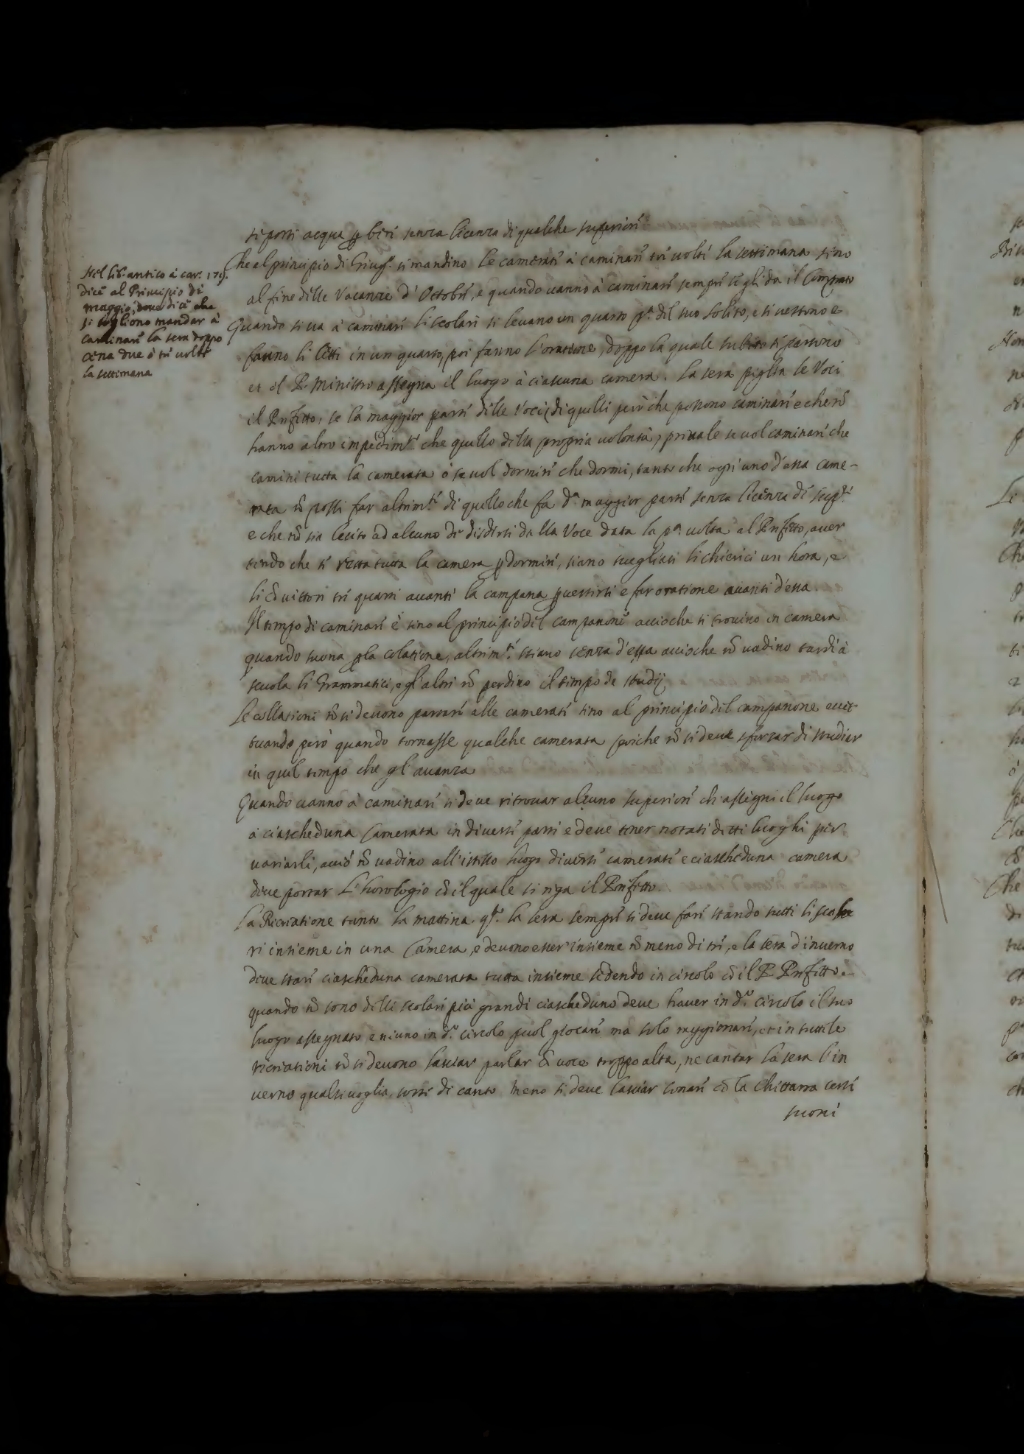 Nel lib. antico à car. 179.
dice al Principio di
maggio, dove dice che
si sogliono mandar à
caminare la sera doppo
cena due ò tre volte
la settimana
si porti acqua p bere senza licenza di qualche superiore
Che al principio di Giug.º si mandino le camerate à caminare tre volte la settimana sino
al fine delle Vacanze d'Ottobre, e quando vanno à caminare sempre segli dà il
Quando si va à caminare li scolari si levano un quarto p.ª del suo solito, e si vestono e
fanno li letti in un quarto, poi fanno l'oratione, doppo la quale subito si partono
et il P. Ministro assegna il luogo à ciascuna camera. La sera piglia le Voci
il Prefetto, se la maggior parte delle Voci (di quelli però che possono caminare e che nõ
hanno altro impedim.to che quello della propria volontà) prevale se vol caminare che
camini tutta la camerata ò se vol dormire che dormi, tanto che ogn'uno d'essa came-
rata nõ possi far altrim.te di quello che fa d.ª maggior parte senza licenza de sup.ri
e che nõ sia lecito ad alcuno di disdirsi dalla Voce data la p.ª volta al Prefetto, aver
tendo che se resta tutta la camera p dormire, siano svegliati li chierici un hora, e
li Convittori tre quarti avanti la campana p vestirsi e far oratione avanti d'essa.
Il tempo di caminare è sino al principio del campanone accioche si trovino in camera
quando suona p la colatione, altrim.te stiano senza d'essa accioche nõ vadino tardi à
scuola li Grammatici, e gl'altri nõ perdino il tempo de studij
Le collationi nõ si devono portare alle camerate sino al principio del campanone eccet-
tuando però quando tornasse qualche camerata poiche nõ si deve sforzar di studiar
in quel tempo che gl'avanza
Quando vanno à caminare si deve ritrovar alcuno superiore ch'assegni il luogo
à ciascheduna Camerata in diverse parti e deve tener notati detti luoghi per
variarli, acciò nõ vadino all'istesso luogo diverse camerate e ciascheduna camera
deve portar l'horologio cõ il quale si rega il Prefetto
La Recreatione tanto la mattina q.to la sera sempre si deve fare stando tutti li scola
ri insieme in una Camera, e devono esser insieme nõ meno di tre, e la sera d'inverno
deve stare ciascheduna camerata tutta insieme sedendo in circolo cõ il P. Prefetto.
quando nõ sono delli scolari più grandi ciascheduno deve haver in d.º circolo il suo
luogo assegnato e niuno in d.º circolo puol giocare ma solo raggionare, et in tutte le
ricreationi nõ si devono lasciar parlar cõ voce troppo alta, ne cantar la sera l'in
verno qualsivoglia sorte di canto meno si deve lasciar sonare cõ la Chitarra certi
suoni